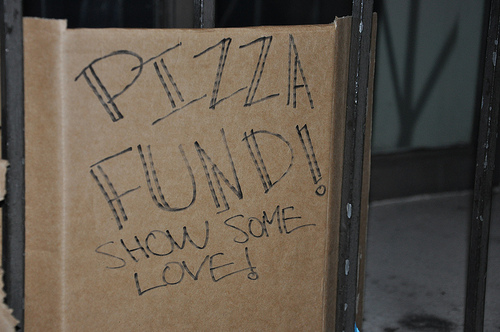 PIZZA
FUND!
SHOW SOME
LOVE!